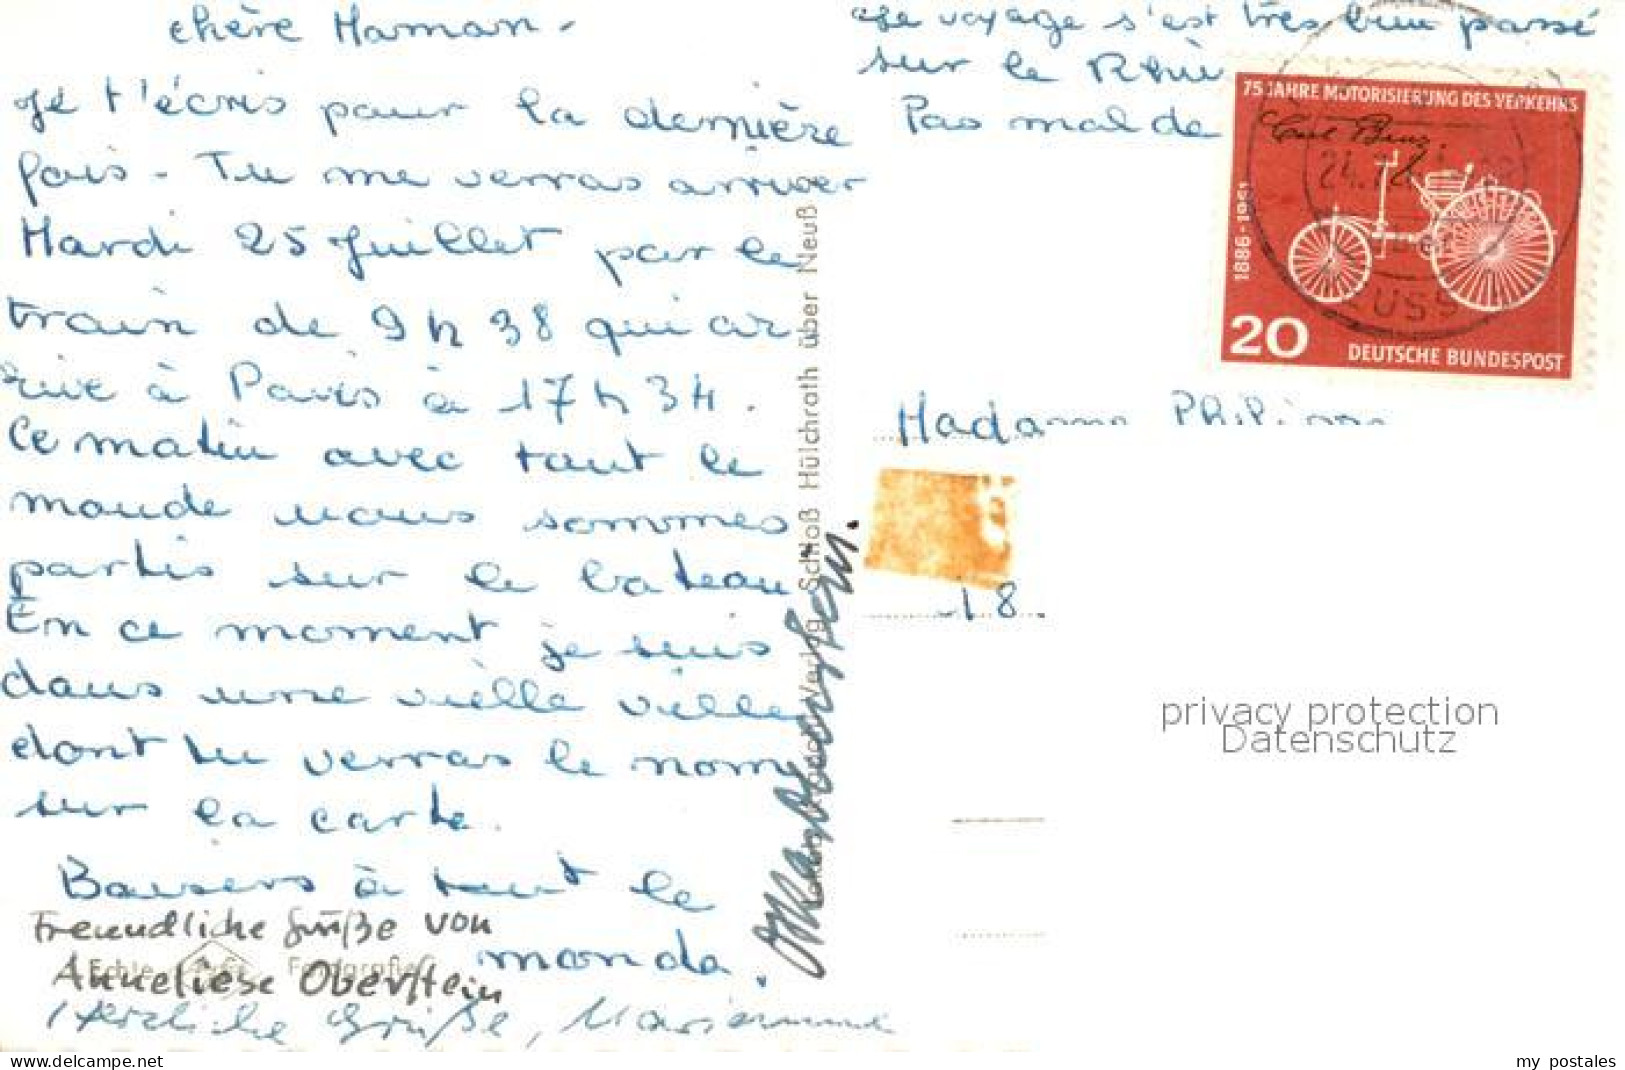 chère Maman -
Je t'écris pour la dernière
fois - Tu me verras arriver
Mardi 25 Juillet par le
train de 9 h 38 qui ar-
rive à Paris à 17 h 34.
Ce matin avec tout le
monde nous sommes
partis sur le bateau
En ce moment je suis
dans une vielle ville
dont tu verras le nom
sur la carte.
Baisers à tout le
monde.
Freundliche Grüße von
Anneliese Oberstein
Herzliche Grüße, Marianne
Schloß Hülchrath über Neuß
Le voyage s'est très bien passé
sur le Rhin
Pas mal de
75 JAHRE MOTORISIERUNG DES VERKEHRS
Carl Benz
1886-1961
20
DEUTSCHE BUNDESPOST
Madame
18.
privacy protection
Datenschutz
my postales